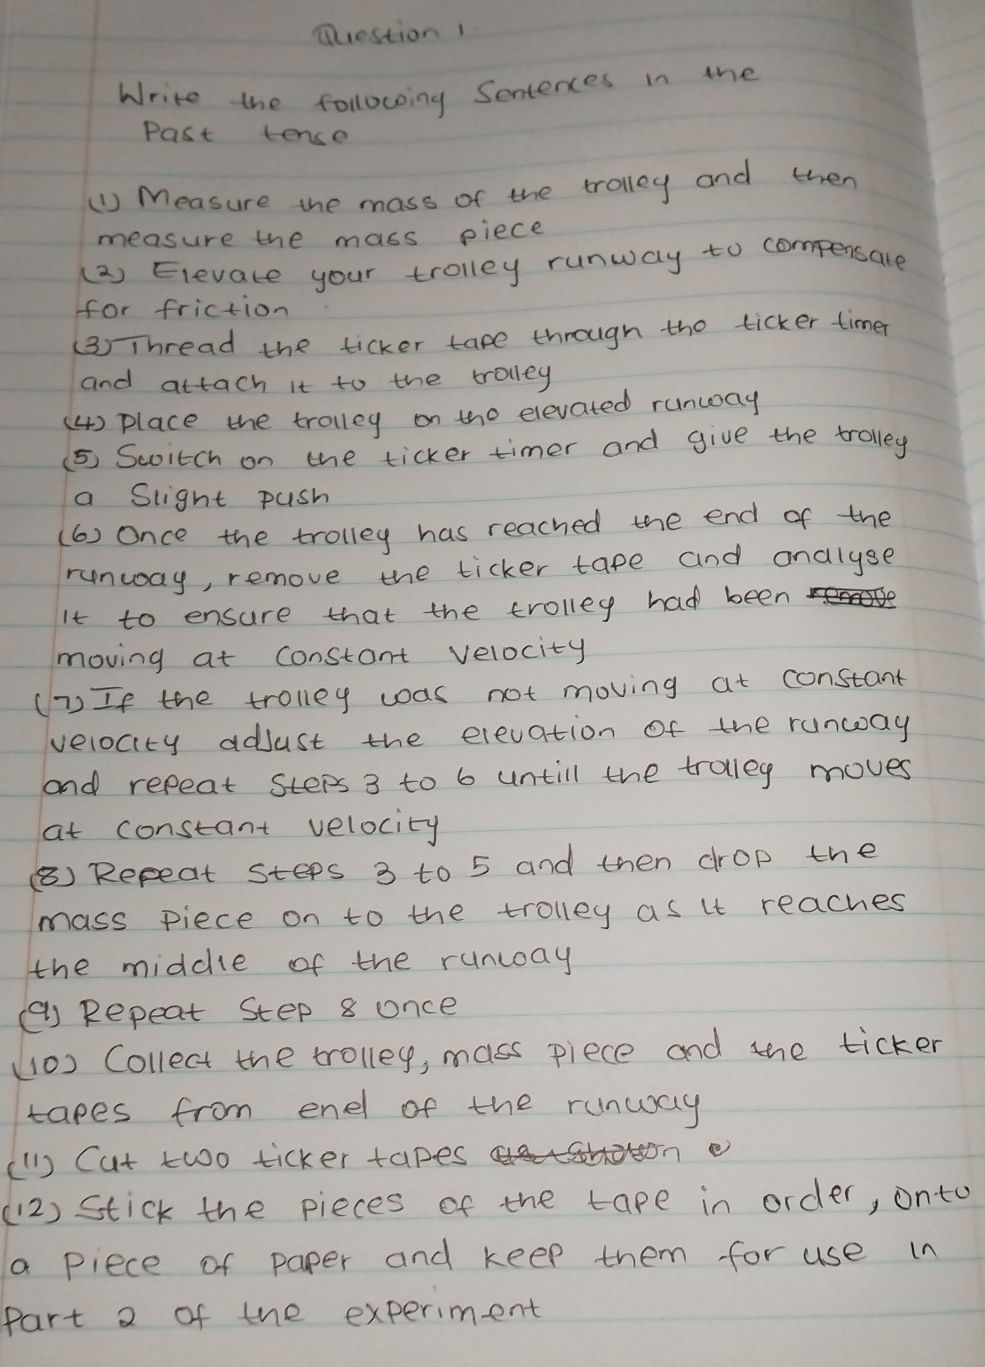 Question 1
Write the following Sentences in the
Past tense
(1) Measure the mass of the trolley and then
measure the mass piece
(2) Elevate your trolley runway to compensate
for friction
(3) Thread the ticker tape through the ticker timer
and attach it to the trolley
(4) Place the trolley on the elevated runway
(5) Switch on the ticker timer and give the trolley
a Slight push
(6) Once the trolley has reached the end of the
runway, remove the ticker tape and analyse
it to ensure that the trolley had been remove
moving at constant velocity
(7) If the trolley was not moving at constant
velocity adjust the elevation of the runway
and repeat Steps 3 to 6 untill the trolley moves
at constant velocity
(8) Repeat Steps 3 to 5 and then drop the
mass piece on to the trolley as it reaches
the middle of the runway
(9) Repeat Step 8 once
(10) Collect the trolley, mass piece and the ticker
tapes from end of the runway
(11) Cut two ticker tapes
(12) Stick the pieces of the tape in order, onto
a piece of paper and keep them for use in
Part 2 of the experiment